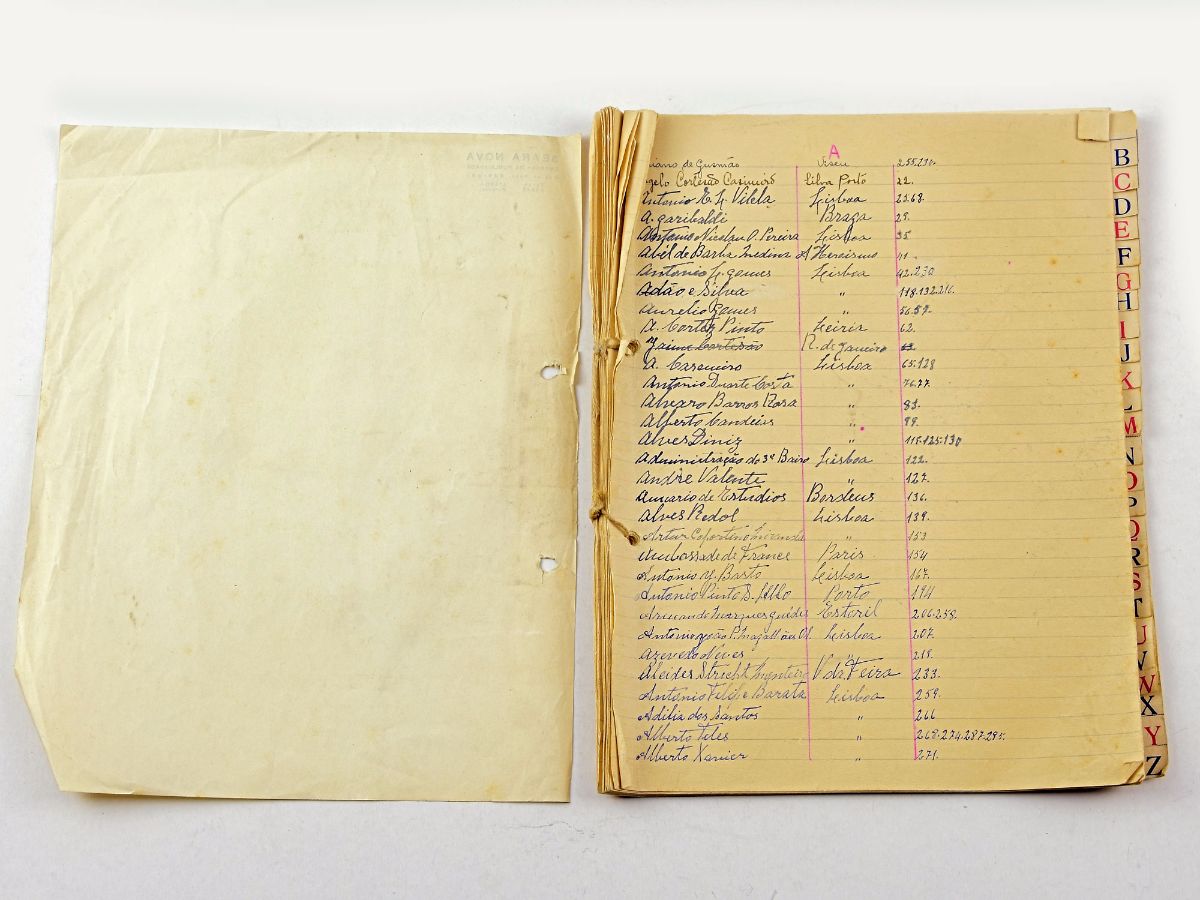 SEARA NOVA
A
de Gusmão Viseu 255.290.
Cortesão Casimiro Silva Porto 22.
Antonio E. G. Vilela Lisboa 23.68.
A. garibaldi Braga 29.
Antonio Nicolau O. Pereira Lisboa 35
Abil de Barba Medina A Heroismo 41
Antonio G. gomes Lisboa 42.230
Adão e Silva " 118.132.216.
Aurelio Gomes " 56.57.
A. Cortez Pinto Leiria 62.
Jaime Cortesão R. de janeiro 63
A. Casemiro Lisboa 65.128
Antonio Duarte Costa " 76.77.
Alvaro Barros Rosa " 81.
Alberto Candeias " 99.
Alves Diniz " 118.125.130
Administração do 3º Bairo Lisboa 122.
Andrè Valente " 127.
Anuario de Estudios Bordeus 136.
Alves Redol Lisboa 139.
Artur " 153
Ambassade de France Paris 154
Antonio M. Basto Lisboa 167.
Antonio Pinto S. Filho Porto 191
Armando Marques guides Estoril 206.258.
Antonio João P. Magalhães Lisboa 207.
Azevedo Neves " 219.
Alcides Strecht Monteiro V. da Feira 233.
Antonio Filipe Barata Lisboa 259.
Adilia dos Santos " 266
Alberto Teles " 268.274.287.295.
Alberto Xavier " 271.
B
C
D
E
F
G
H
I
J
K
L
M
N
O
P
Q
R
S
T
U
V
W
X
Y
Z